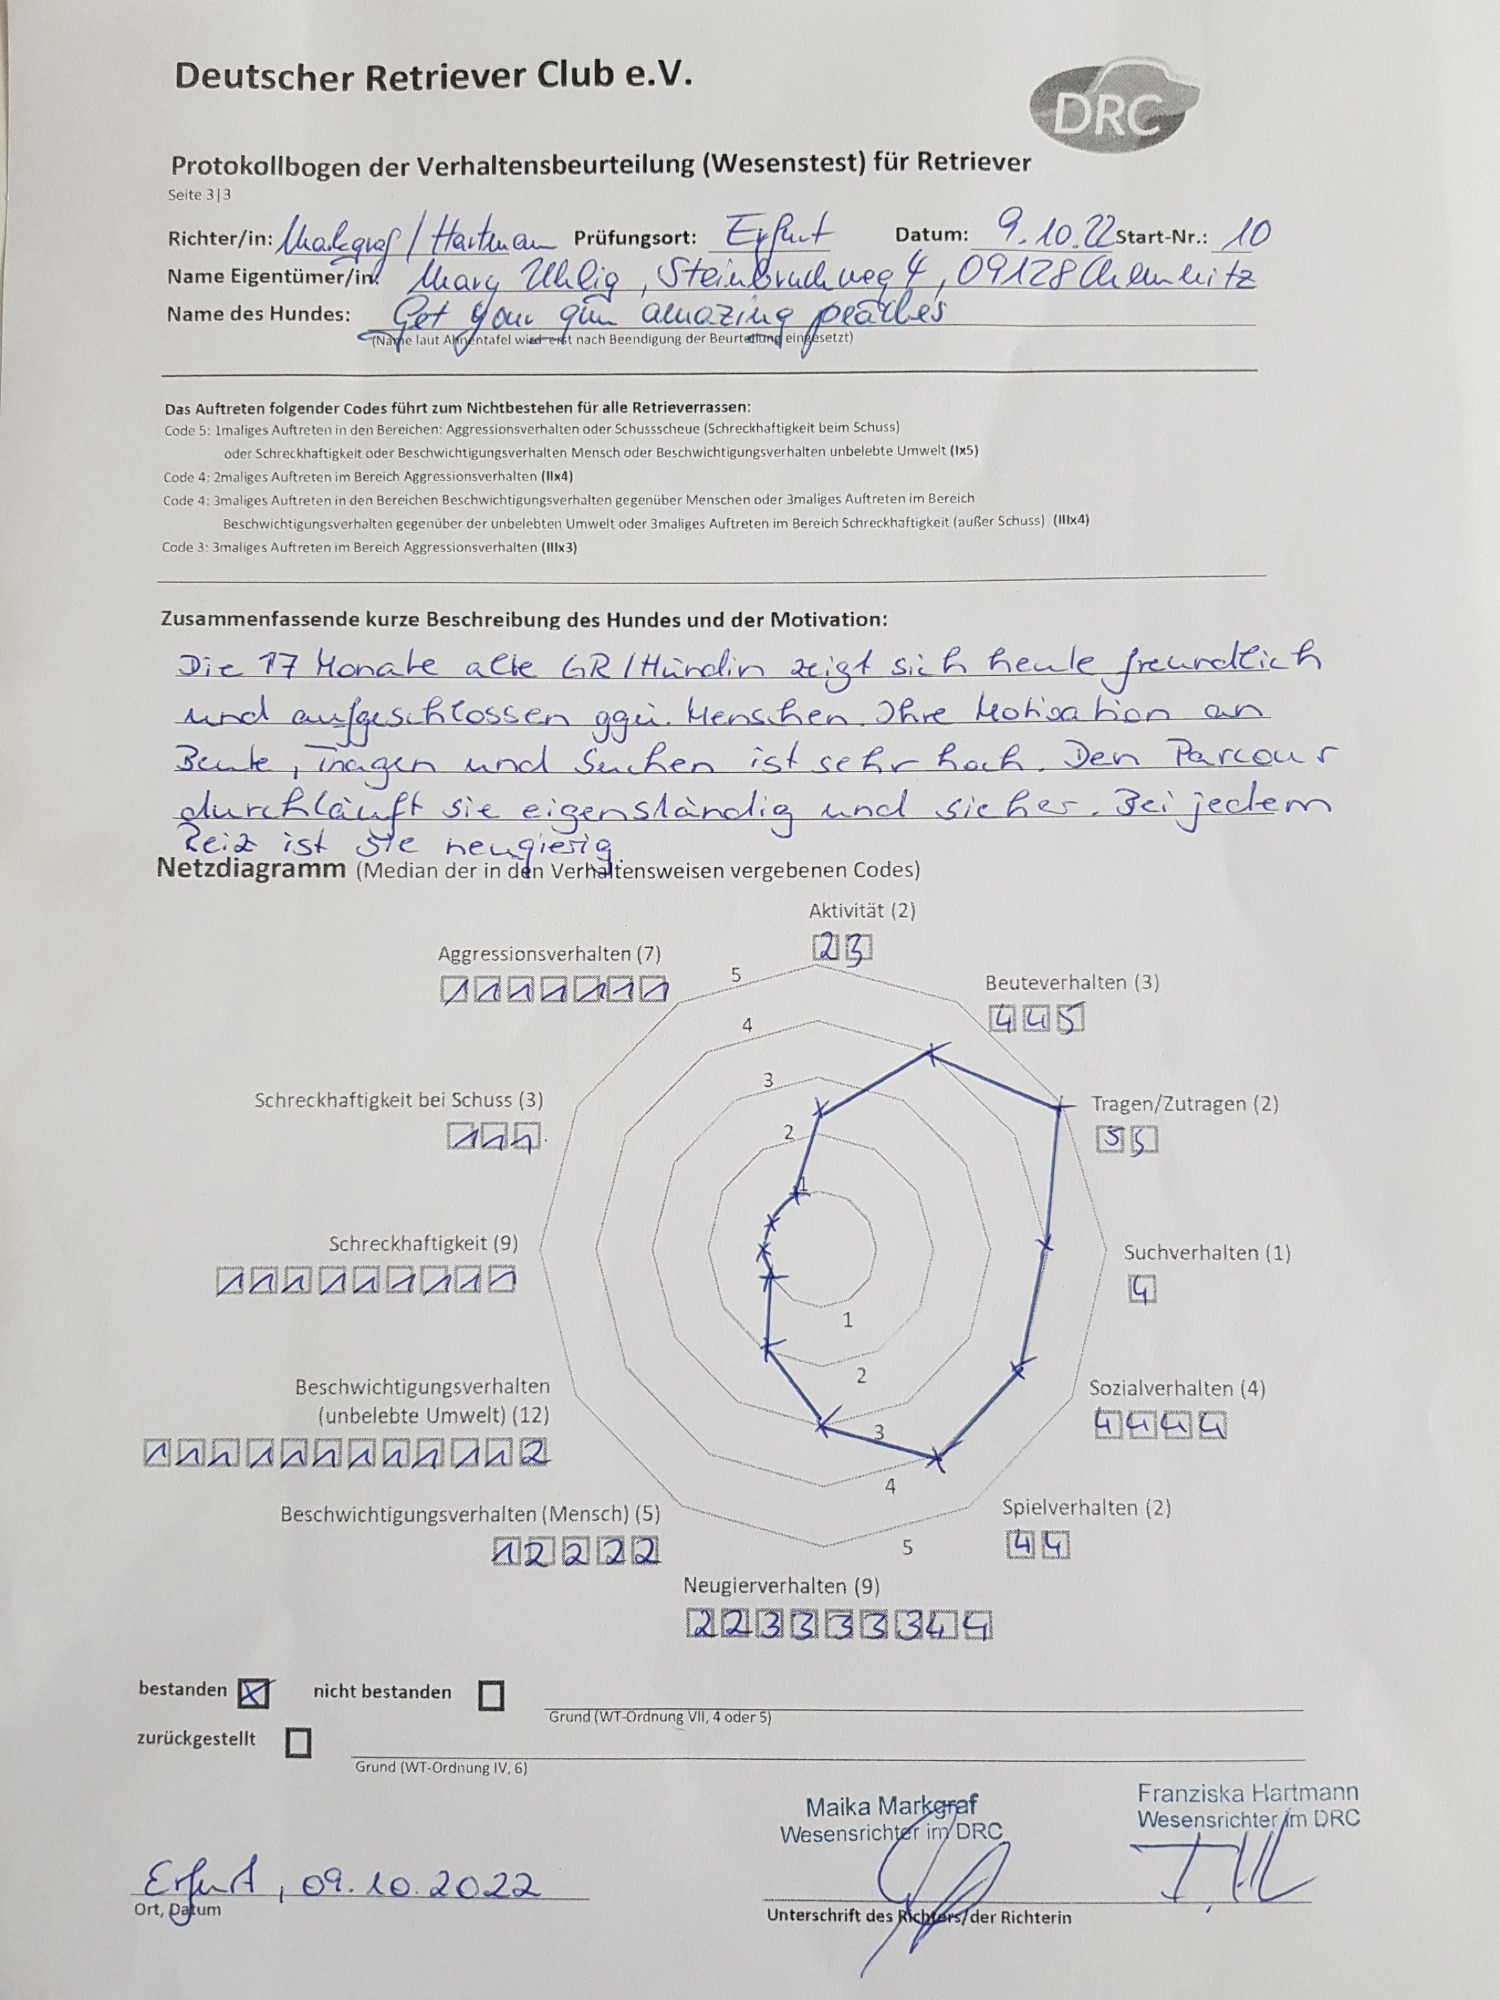 Deutscher Retriever Club e.V.
DRC
Protokollbogen der Verhaltensbeurteilung (Wesenstest) für Retriever
Seite 3|3
Richter/in: Markgraf / Hartman Prüfungsort: Erfurt Datum: 9.10.22 Start-Nr.: 10
Name Eigentümer/in: Mary Uhlig, Steinbruchweg 4, 09128 Chemnitz
Name des Hundes: Get your gun amazing peaches
(Name laut Ahnentafel wird erst nach Beendigung der Beurteilung eingesetzt)
Das Auftreten folgender Codes führt zum Nichtbestehen für alle Retrieverrassen:
Code 5: 1maliges Auftreten in den Bereichen: Aggressionsverhalten oder Schussscheue (Schreckhaftigkeit beim Schuss)
oder Schreckhaftigkeit oder Beschwichtigungsverhalten Mensch oder Beschwichtigungsverhalten unbelebte Umwelt (Ix5)
Code 4: 2maliges Auftreten im Bereich Aggressionsverhalten (IIx4)
Code 4: 3maliges Auftreten in den Bereichen Beschwichtigungsverhalten gegenüber Menschen oder 3maliges Auftreten im Bereich
Beschwichtigungsverhalten gegenüber der unbelebten Umwelt oder 3maliges Auftreten im Bereich Schreckhaftigkeit (außer Schuss) (IIIx4)
Code 3: 3maliges Auftreten im Bereich Aggressionsverhalten (IIIx3)
Zusammenfassende kurze Beschreibung des Hundes und der Motivation:
Die 17 Monate alte GR/Hündin zeigt sich heute freundlich
und aufgeschlossen ggü. Menschen. Ihre Motivation an
Beute, Tragen und Suchen ist sehr hoch. Den Parcour
durchläuft sie eigenständig und sicher. Bei jedem
Reiz ist sie neugierig.
Netzdiagramm (Median der in den Verhaltensweisen vergebenen Codes)
Aktivität (2)
2 3
Aggressionsverhalten (7)
1 1 1 1 1 1 1
Beuteverhalten (3)
4 4 5
Schreckhaftigkeit bei Schuss (3)
1 1 1
Tragen/Zutragen (2)
5 5
Schreckhaftigkeit (9)
1 1 1 1 1 1 1 1 1
Suchverhalten (1)
4
Beschwichtigungsverhalten
(unbelebte Umwelt) (12)
1 1 1 1 1 1 1 1 1 1 1 2
Sozialverhalten (4)
4 4 4 4
Beschwichtigungsverhalten (Mensch) (5)
1 2 2 2 2
Spielverhalten (2)
4 4
Neugierverhalten (9)
2 2 3 3 3 3 3 4 4
5
4
3
2
1
1
2
3
4
5
bestanden nicht bestanden
Grund (WT-Ordnung VII, 4 oder 5)
zurückgestellt
Grund (WT-Ordnung IV, 6)
Maika Markgraf
Wesensrichter im DRC
Franziska Hartmann
Wesensrichter im DRC
Erfurt, 09.10.2022
Ort, Datum
Unterschrift des Richters/der Richterin